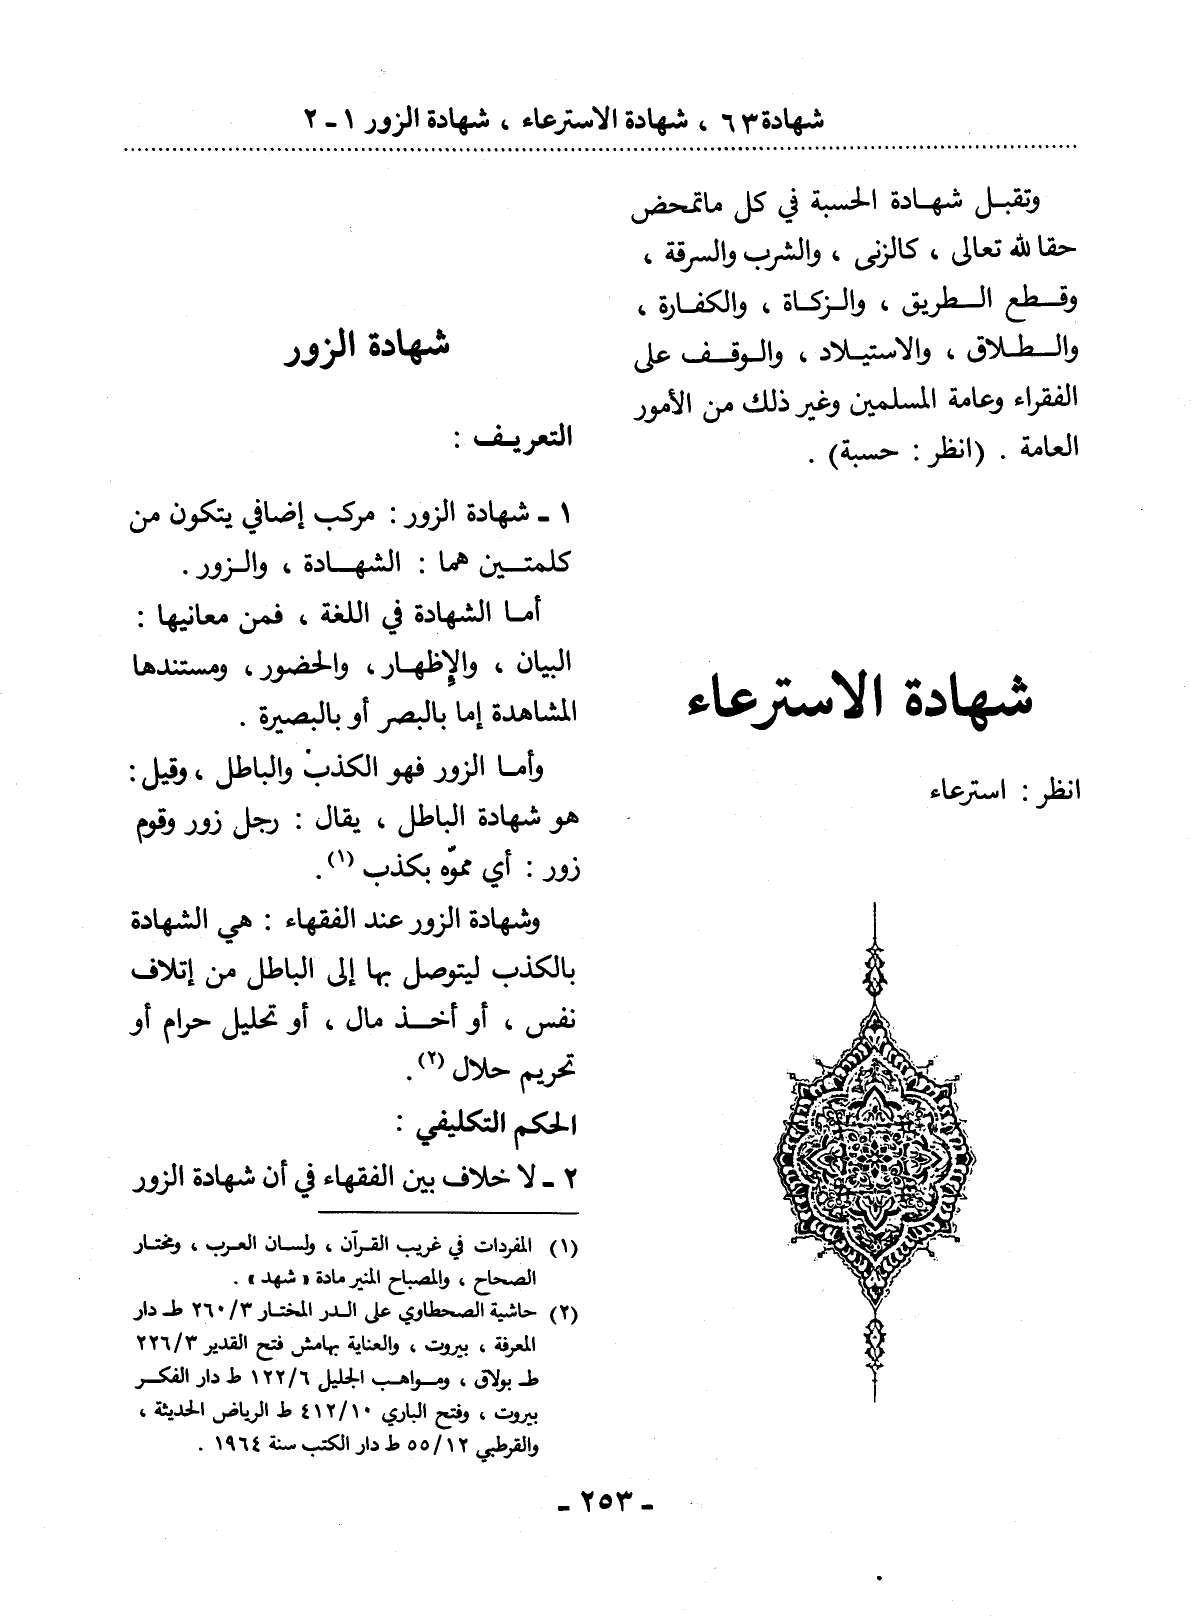 شهادة ٦٣ ، شهادة الاسترعاء ، شهادة الزور ١ ـ ٢
وتقبل شهادة الحسبة في كل ماتمحض
حقا لله تعالى ، كالزنى ، والشرب والسرقة ،
وقطع الطريق ، والزكاة ، والكفارة ،
والطلاق ، والاستيلاد ، والوقف على
الفقراء وعامة المسلمين وغير ذلك من الأمور
العامة . (انظر : حسبة) .
شهادة الاسترعاء
انظر : استرعاء
شهادة الزور
التعريف :
١ ـ شهادة الزور : مركب إضافي يتكون من
كلمتين هما : الشهادة ، والزور .
أما الشهادة في اللغة ، فمن معانيها :
البيان ، والإظهار ، والحضور ، ومستندها
المشاهدة إما بالبصر أو بالبصيرة .
وأما الزور فهو الكذب والباطل ، وقيل :
هو شهادة الباطل ، يقال : رجل زور وقوم
زور : أي مموّه بكذب (١) .
وشهادة الزور عند الفقهاء : هي الشهادة
بالكذب ليتوصل بها إلى الباطل من إتلاف
نفس ، أو أخذ مال ، أو تحليل حرام أو
تحريم حلال (٢) .
الحكم التكليفي :
٢ ـ لا خلاف بين الفقهاء في أن شهادة الزور
(١) المفردات في غريب القرآن ، ولسان العرب ، ومختار
الصحاح ، والمصباح المنير مادة « شهد » .
(٢) حاشية الصحطاوي على الدر المختار ٣/٢٦٠ ط دار
المعرفة ، بيروت ، والعناية بهامش فتح القدير ٣/٢٢٦
ط بولاق ، ومواهب الجليل ٦/١٢٢ ط دار الفكر
بيروت ، وفتح الباري ١٠/٤١٢ ط الرياض الحديثة ،
والقرطبي ١٢/٥٥ ط دار الكتب سنة ١٩٦٤ .
ـ ٢٥٣ ـ